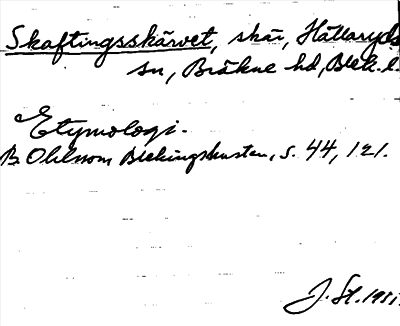 Skaftingsskärvet, skär, Hällaryds
sn, Bräkne hd, Blek. l.
Etymologi.
B. Ohlsson, Blekingskusten, s. 44, 121.
J. St. 1951.